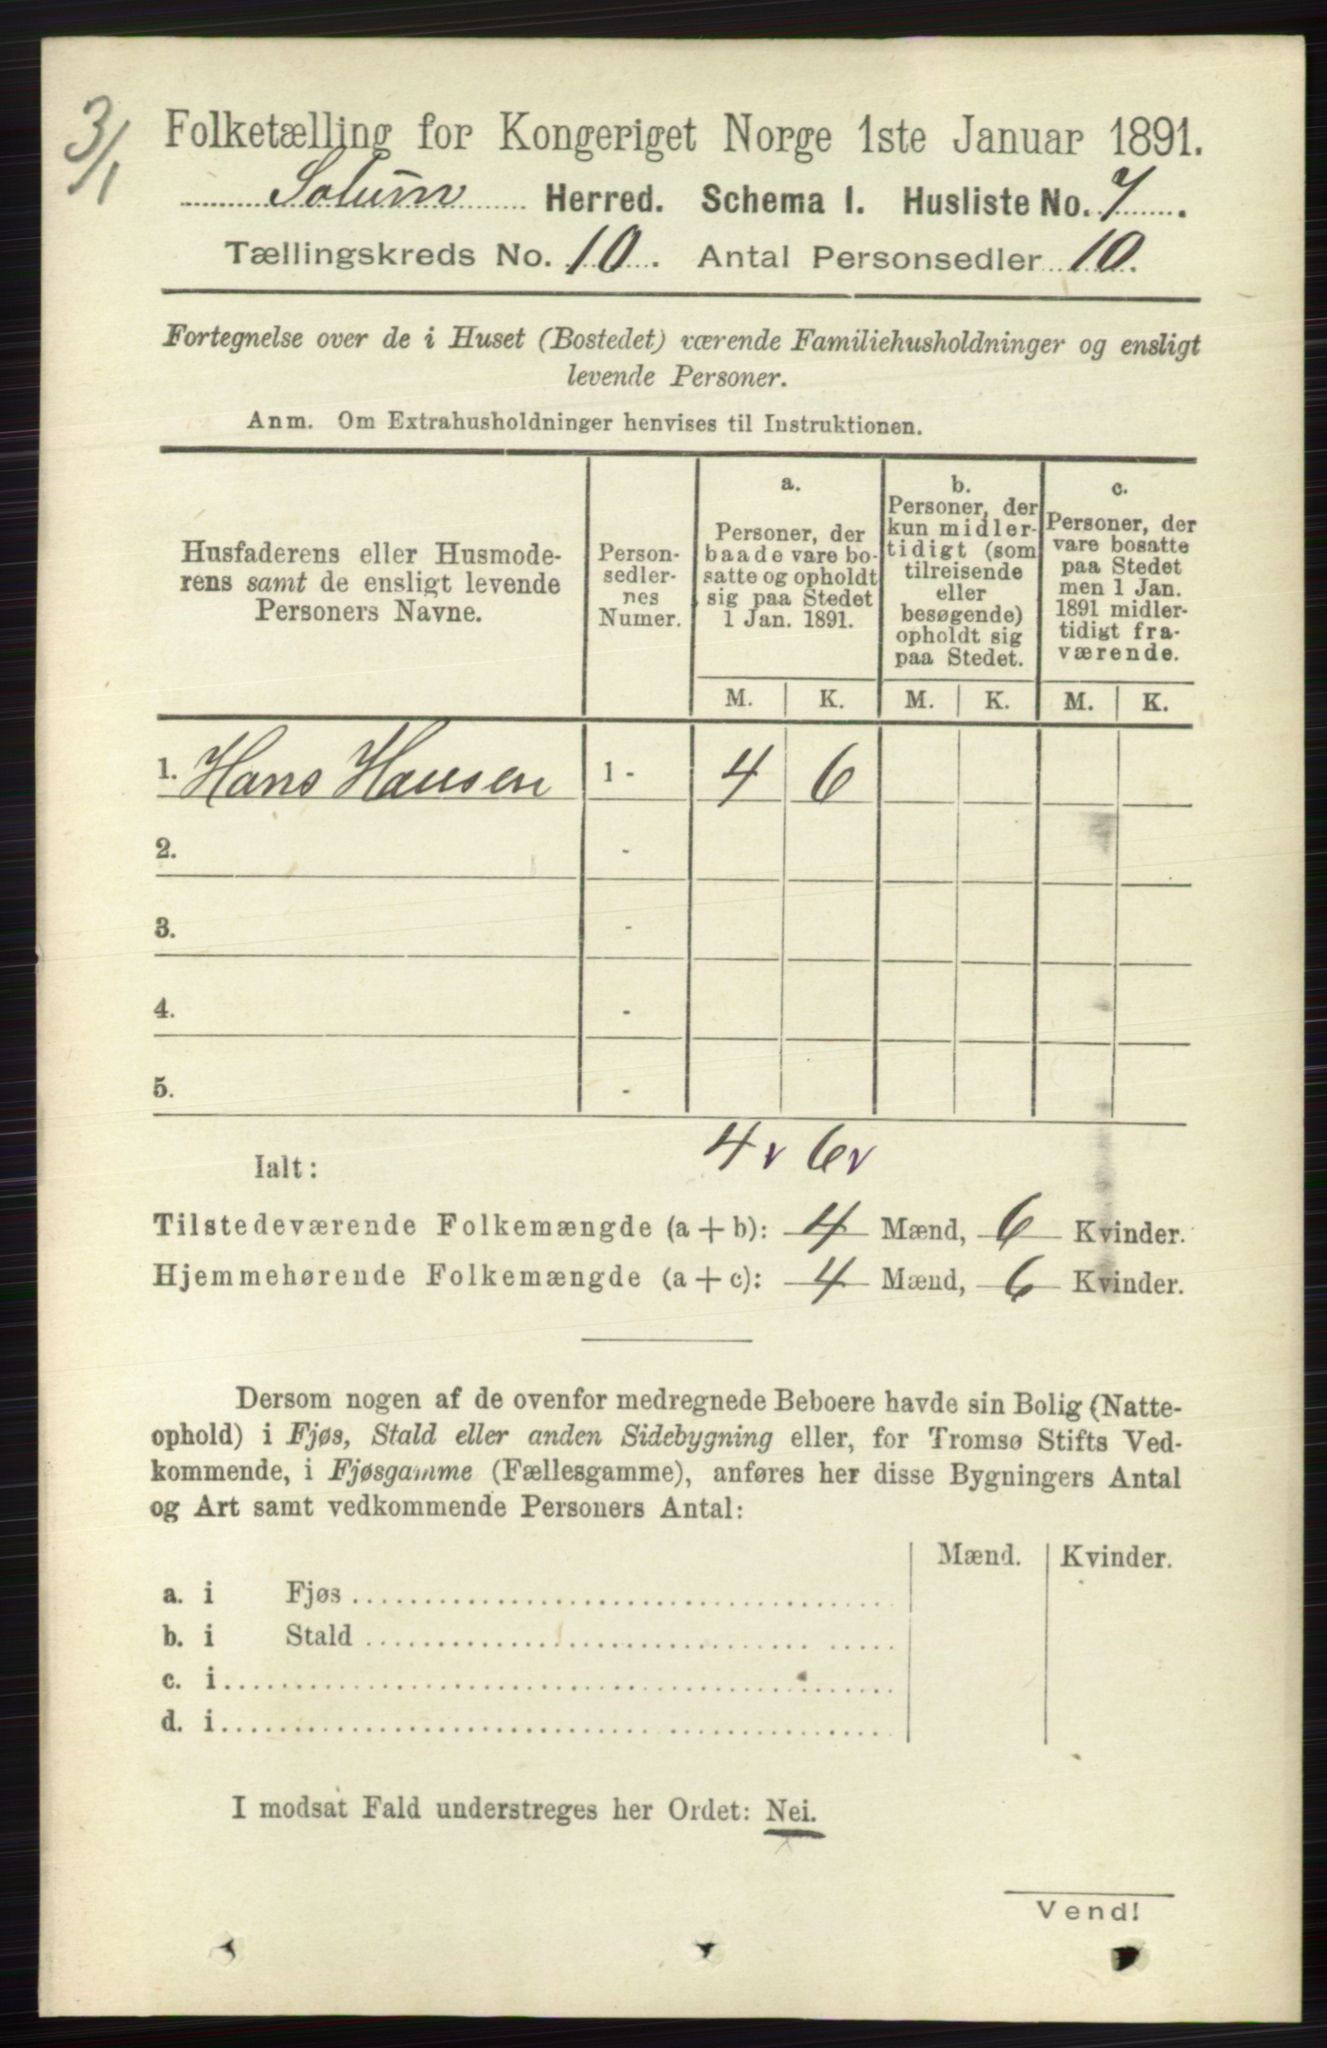 3/1
Folketælling for Kongeriget Norge 1ste Januar 1891.
Solum Herred. Schema I. Husliste No. 7.
Tællingskreds No. 10. Antal Personsedler 10.
Fortegnelse over de i Huset (Bostedet) værende Familiehusholdninger og ensligt
levende Personer.
Anm. Om Extrahusholdninger henvises til Instruktionen.
Husfaderens eller Husmode-
rens samt de ensligt levende
Personers Navne.
Person-
sedler-
nes
Numer.
a.
Personer, der
baade vare bo-
satte og opholdt
sig paa Stedet
1 Jan. 1891.
b.
Personer, der
kun midler-
tidigt (som
tilreisende
eller
besøgende)
opholdt sig
paa Stedet.
c.
Personer, der
vare bosatte
paa Stedet
men 1 Jan.
1891 midler-
tidigt fra-
værende.
M. K. M. K. M. K.
1. Hans Hansen 1 - 4 6
2. -
3. -
4. -
5. -
4 v 6 v
Ialt:
Tilstedeværende Folkemængde (a + b): 4 Mænd, 6 Kvinder.
Hjemmehørende Folkemængde (a + c): 4 Mænd, 6 Kvinder.
Dersom nogen af de ovenfor medregnede Beboere havde sin Bolig (Natte-
ophold) i Fjøs, Stald eller anden Sidebygning eller, for Tromsø Stifts Ved-
kommende, i Fjøsgamme (Fællesgamme), anføres her disse Bygningers Antal
og Art samt vedkommende Personers Antal:
Mænd. Kvinder.
a. i Fjøs
b. i Stald
c. i
d. i
I modsat Fald understreges her Ordet: Nei.
Vend!